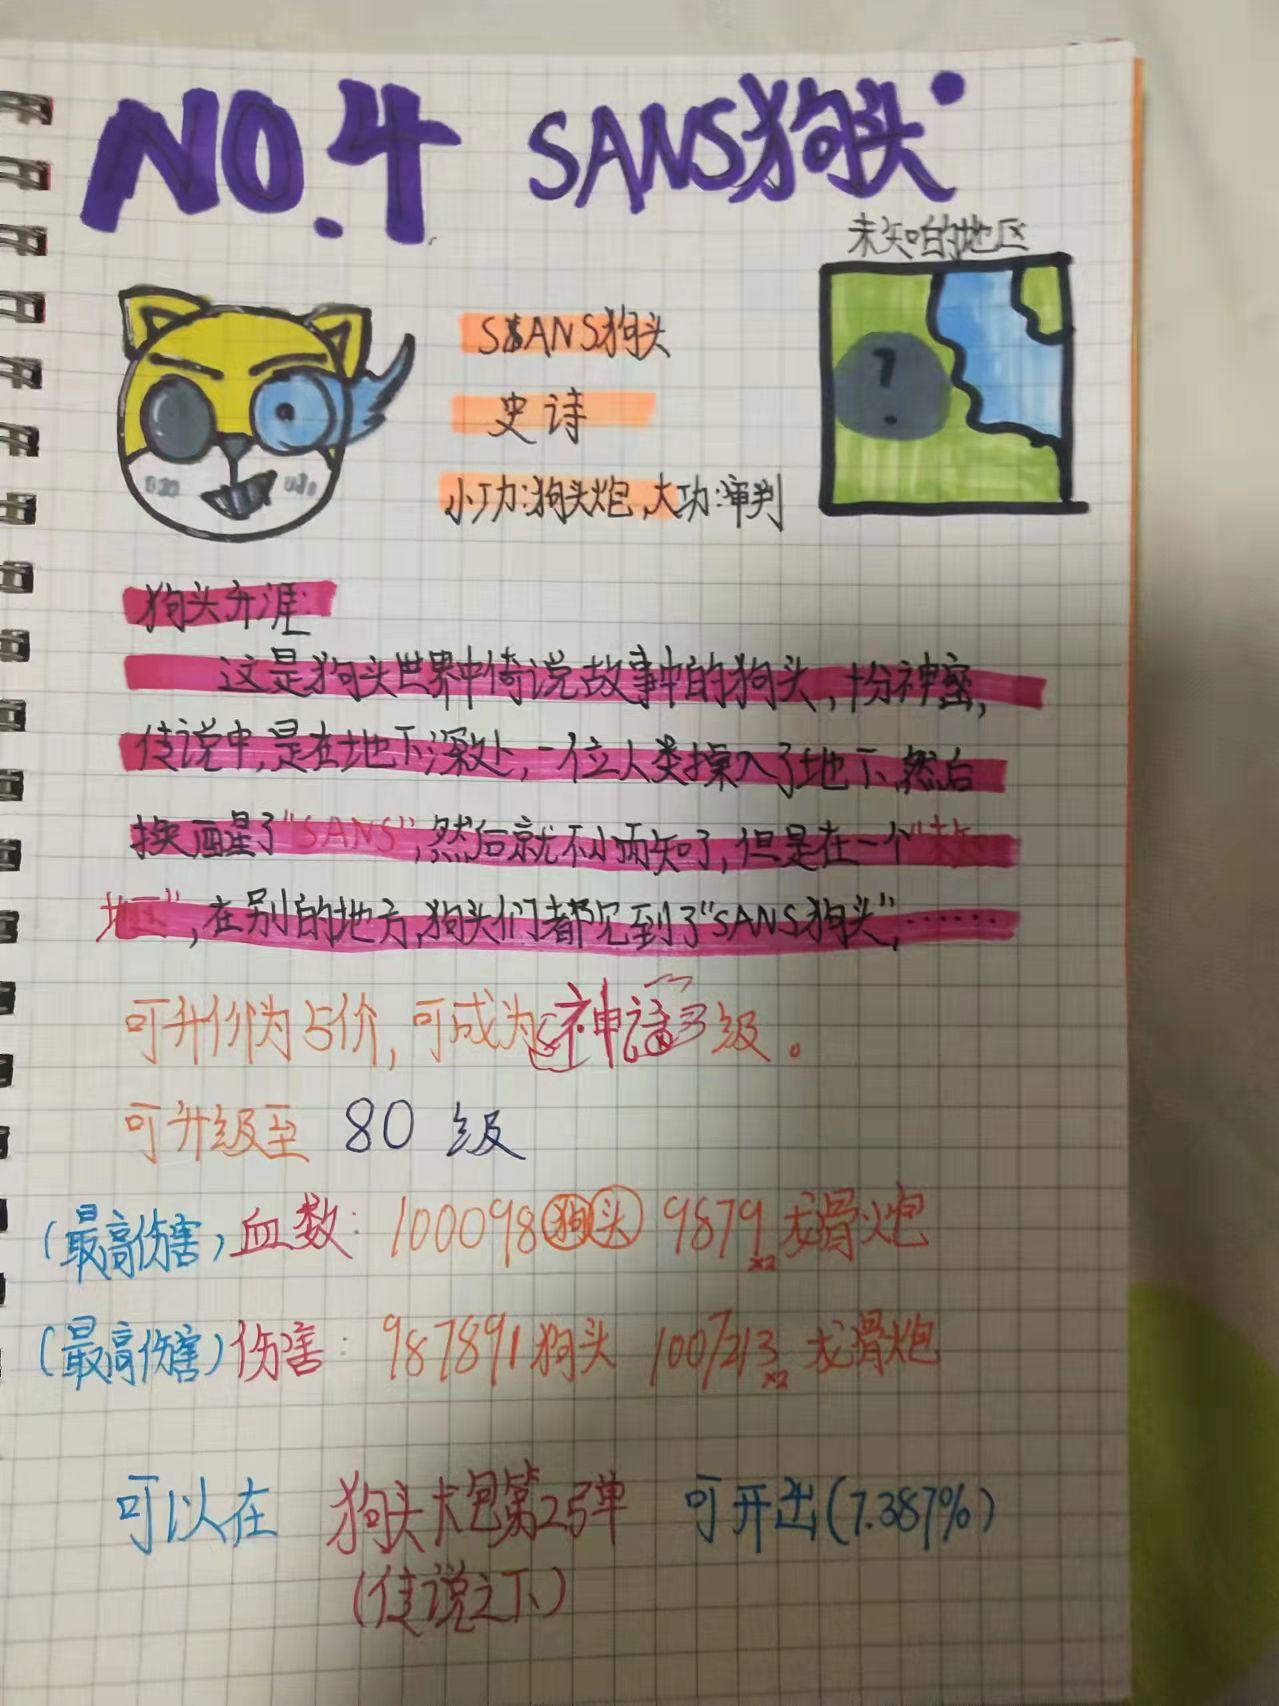 NO.4 SANS狗头
未知的地区
SANS狗头
史诗
小功:狗头炮,大功:审判
?
狗头升涯:
这是狗头世界中传说故事中的狗头,十分神密,
传说中,是在地下深处,一位人类探入了地下,然后
换醒了"SANS",然后就不小而知了,但是在一个"未知
地区",在别的地方,狗头们都见到了"SANS狗头",……
可升价为5价,可成为神话3级。
可升级至 80 级
(最高伤害)血数: 100098狗头 9879x2龙骨炮
(最高伤害)伤害: 987891狗头 1007213x2龙骨炮
可以在 狗头卡包第25弹 可开出(7.387%)
(传说之下)